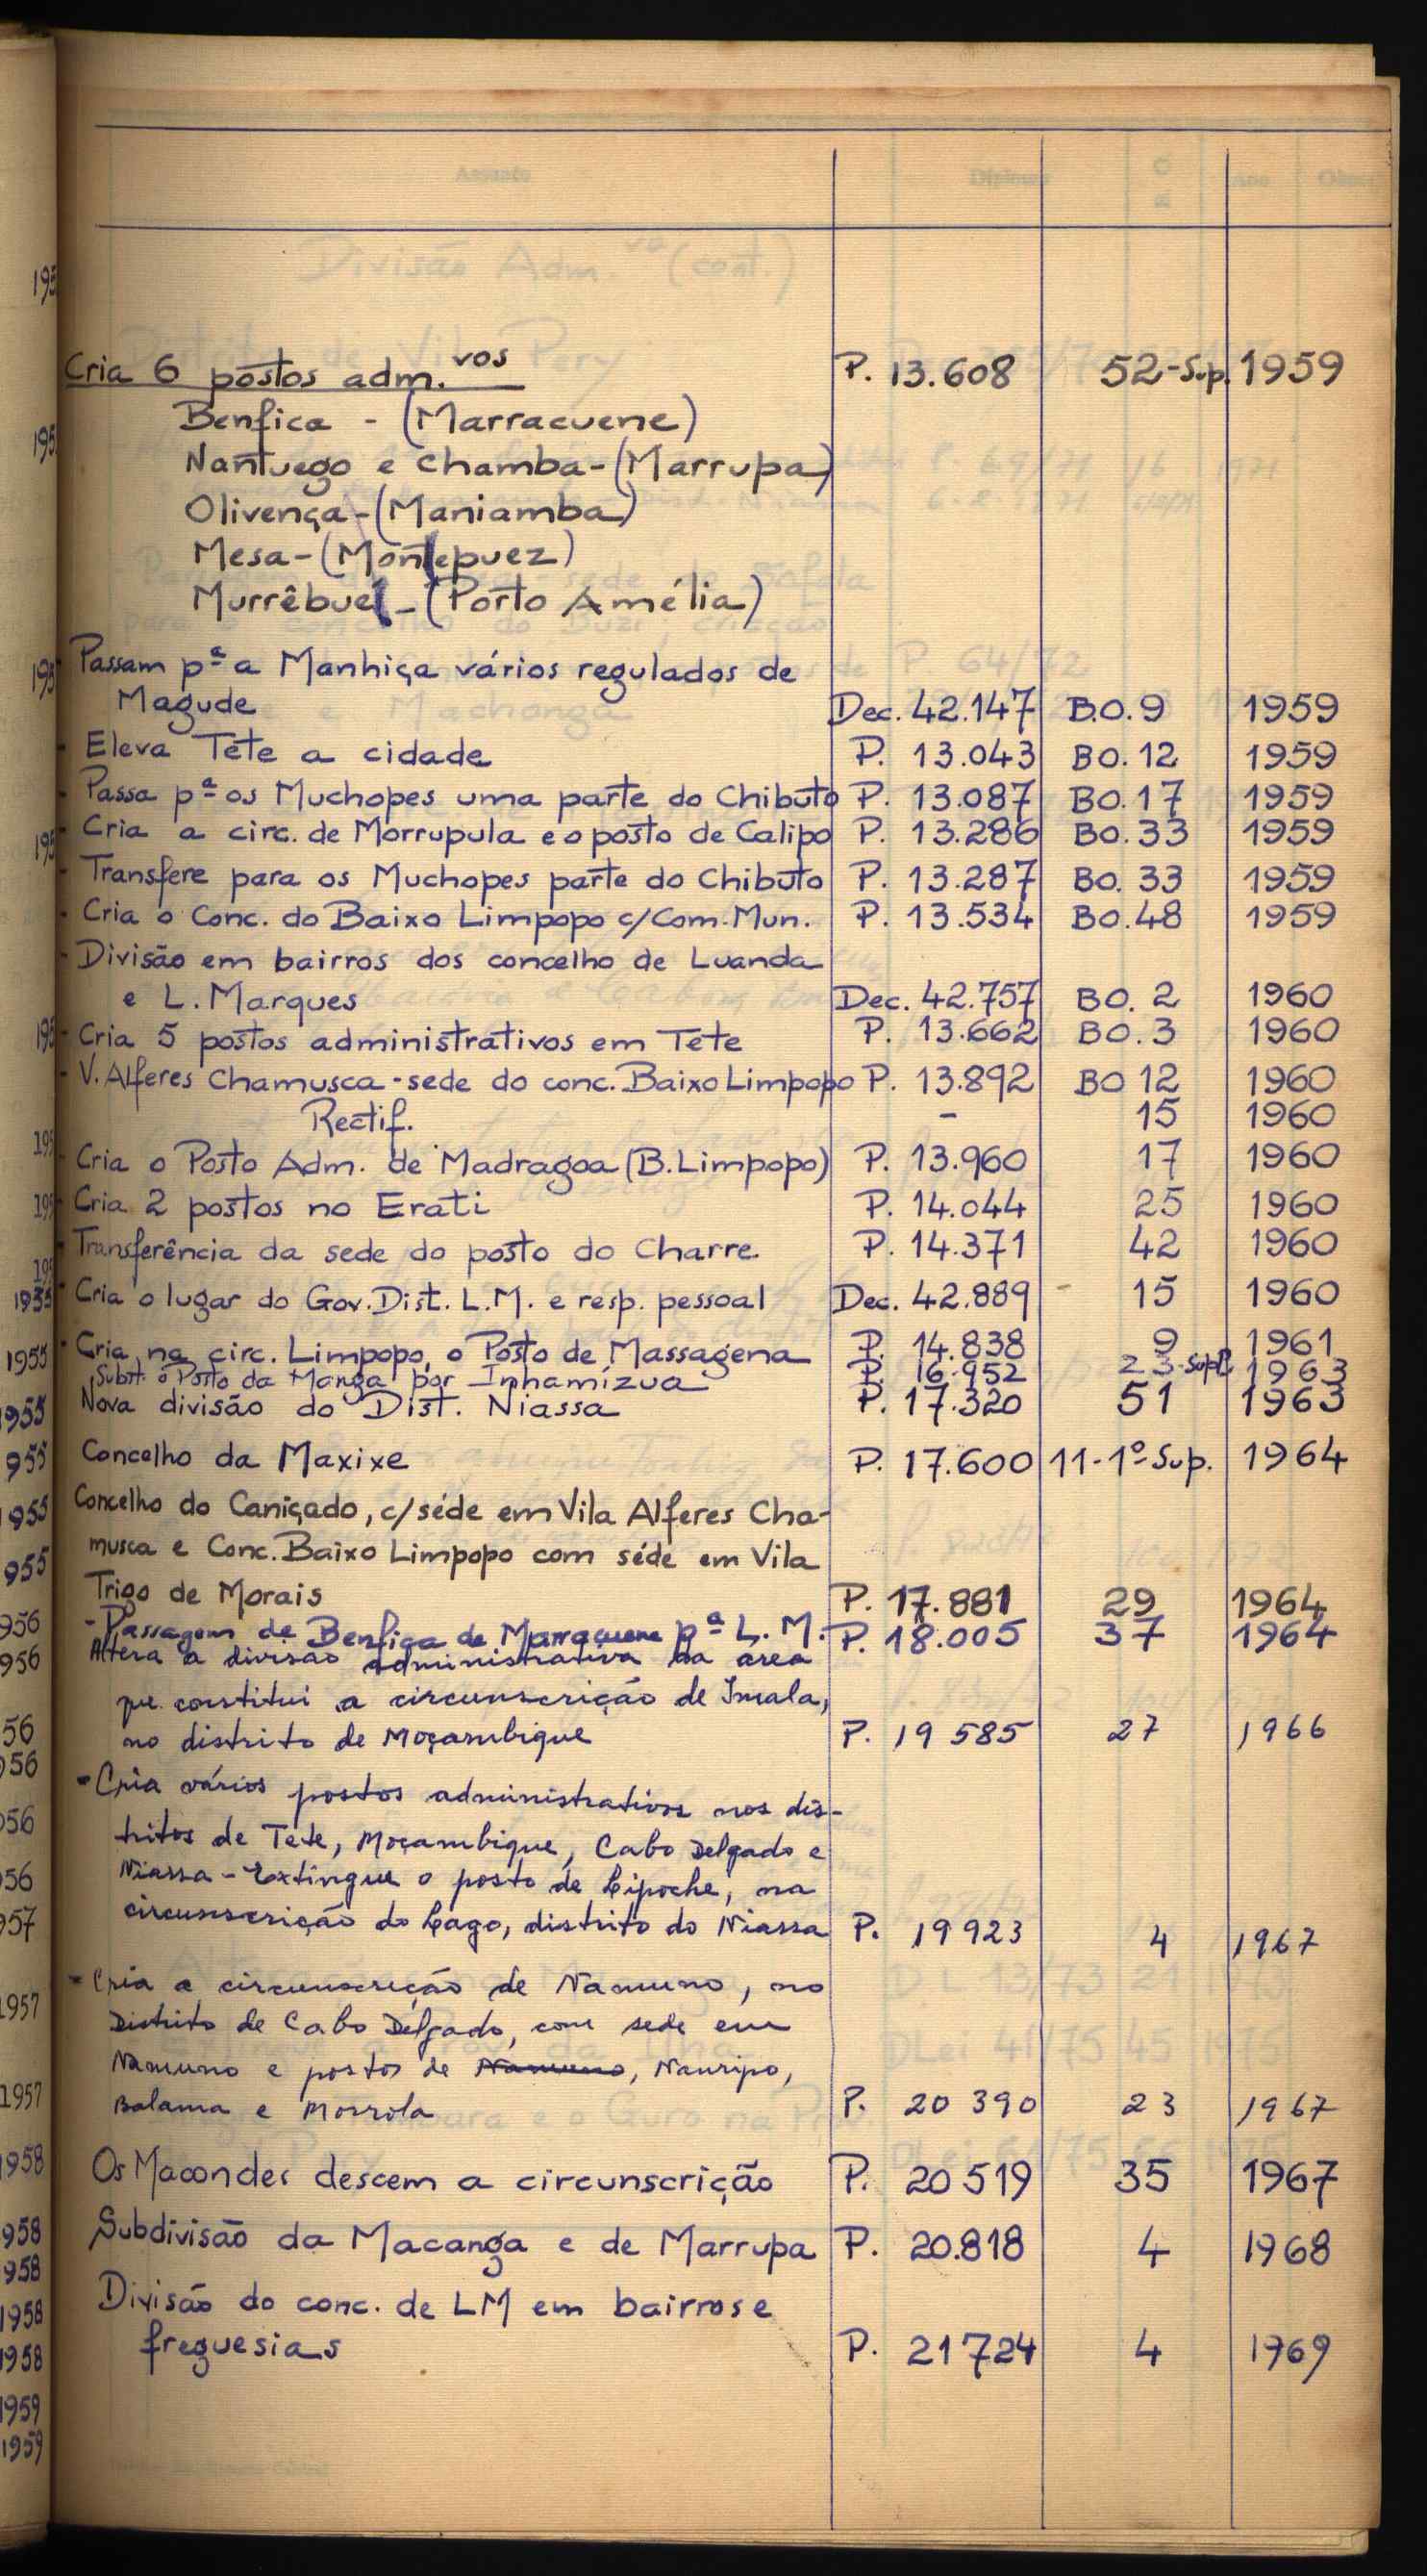 Cria 6 postos adm.vos P. 13.608 52-Sup. 1959
Benfica - (Marracuene)
Nantuego e Chamba-(Marrupa)
Olivença-(Maniamba)
Mesa-(Montepuez)
Murrêbue - (Porto Amélia)
Passam pª a Manhiça vários regulados de
Magude Dec. 42.147 B.O. 9 1959
- Eleva Tete a cidade P. 13.043 BO. 12 1959
- Passa pª os Muchopes uma parte do Chibuto P. 13.087 BO. 17 1959
- Cria a circ. de Morrupula e o posto de Calipo P. 13.286 BO. 33 1959
- Transfere para os Muchopes parte do Chibuto P. 13.287 BO. 33 1959
- Cria o Conc. do Baixo Limpopo c/Com. Mun. P. 13.534 BO. 48 1959
- Divisão em bairros dos concelho de Luanda
e L. Marques Dec. 42.757 BO. 2 1960
- Cria 5 postos administrativos em Tete P. 13.662 BO. 3 1960
- V. Alferes Chamusca - sede do conc. Baixo Limpopo P. 13.892 BO 12 1960
Rectif. - 15 1960
- Cria o Posto Adm. de Madragoa (B. Limpopo) P. 13.960 17 1960
- Cria 2 postos no Erati P. 14.044 25 1960
- Transferência da sede do posto do Charre. P. 14.371 42 1960
- Cria o lugar do Gov. Dist. L.M. e resp. pessoal Dec. 42.889 - 15 1960
- Cria na circ. Limpopo, o Posto de Massagena P. 14.838 9 1961
Subst. o Posto da Manga por Inhamízua P. 16.952 23-Supl. 1963
Nova divisão do Dist. Niassa P. 17.320 51 1963
Concelho da Maxixe P. 17.600 11-1º Sup. 1964
Concelho do Caniçado, c/séde em Vila Alferes Cha-
musca e Conc. Baixo Limpopo com séde em Vila
Trigo de Morais P. 17.881 29 1964
- Passagem de Benfica de Marracuene pª L. M. P. 18.005 37 1964
Altera a divisão administrativa da área
que constitui a circunscrição de Imala,
no distrito de Moçambique P. 19 585 27 1966
- Cria vários postos administrativos nos dis-
tritos de Tete, Moçambique, Cabo Delgado e
Niassa - Extingue o posto de Lipoche, na
circunscrição do Lago, distrito do Niassa P. 19 923 4 1967
- Cria a circunscrição de Namuno, no
Distrito de Cabo Delgado, com sede em
Namuno e postos de Namuno, Nauripo,
Balama e Morrola P. 20 390 23 1967
Os Macondes descem a circunscrição P. 20 519 35 1967
Subdivisão da Macanga e de Marrupa P. 20.818 4 1968
Divisão do conc. de LM em bairros e
freguesias P. 21724 4 1969